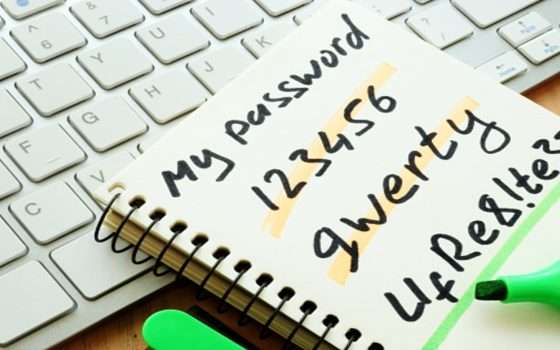 My password
123456
qwerty
UfRe8!te